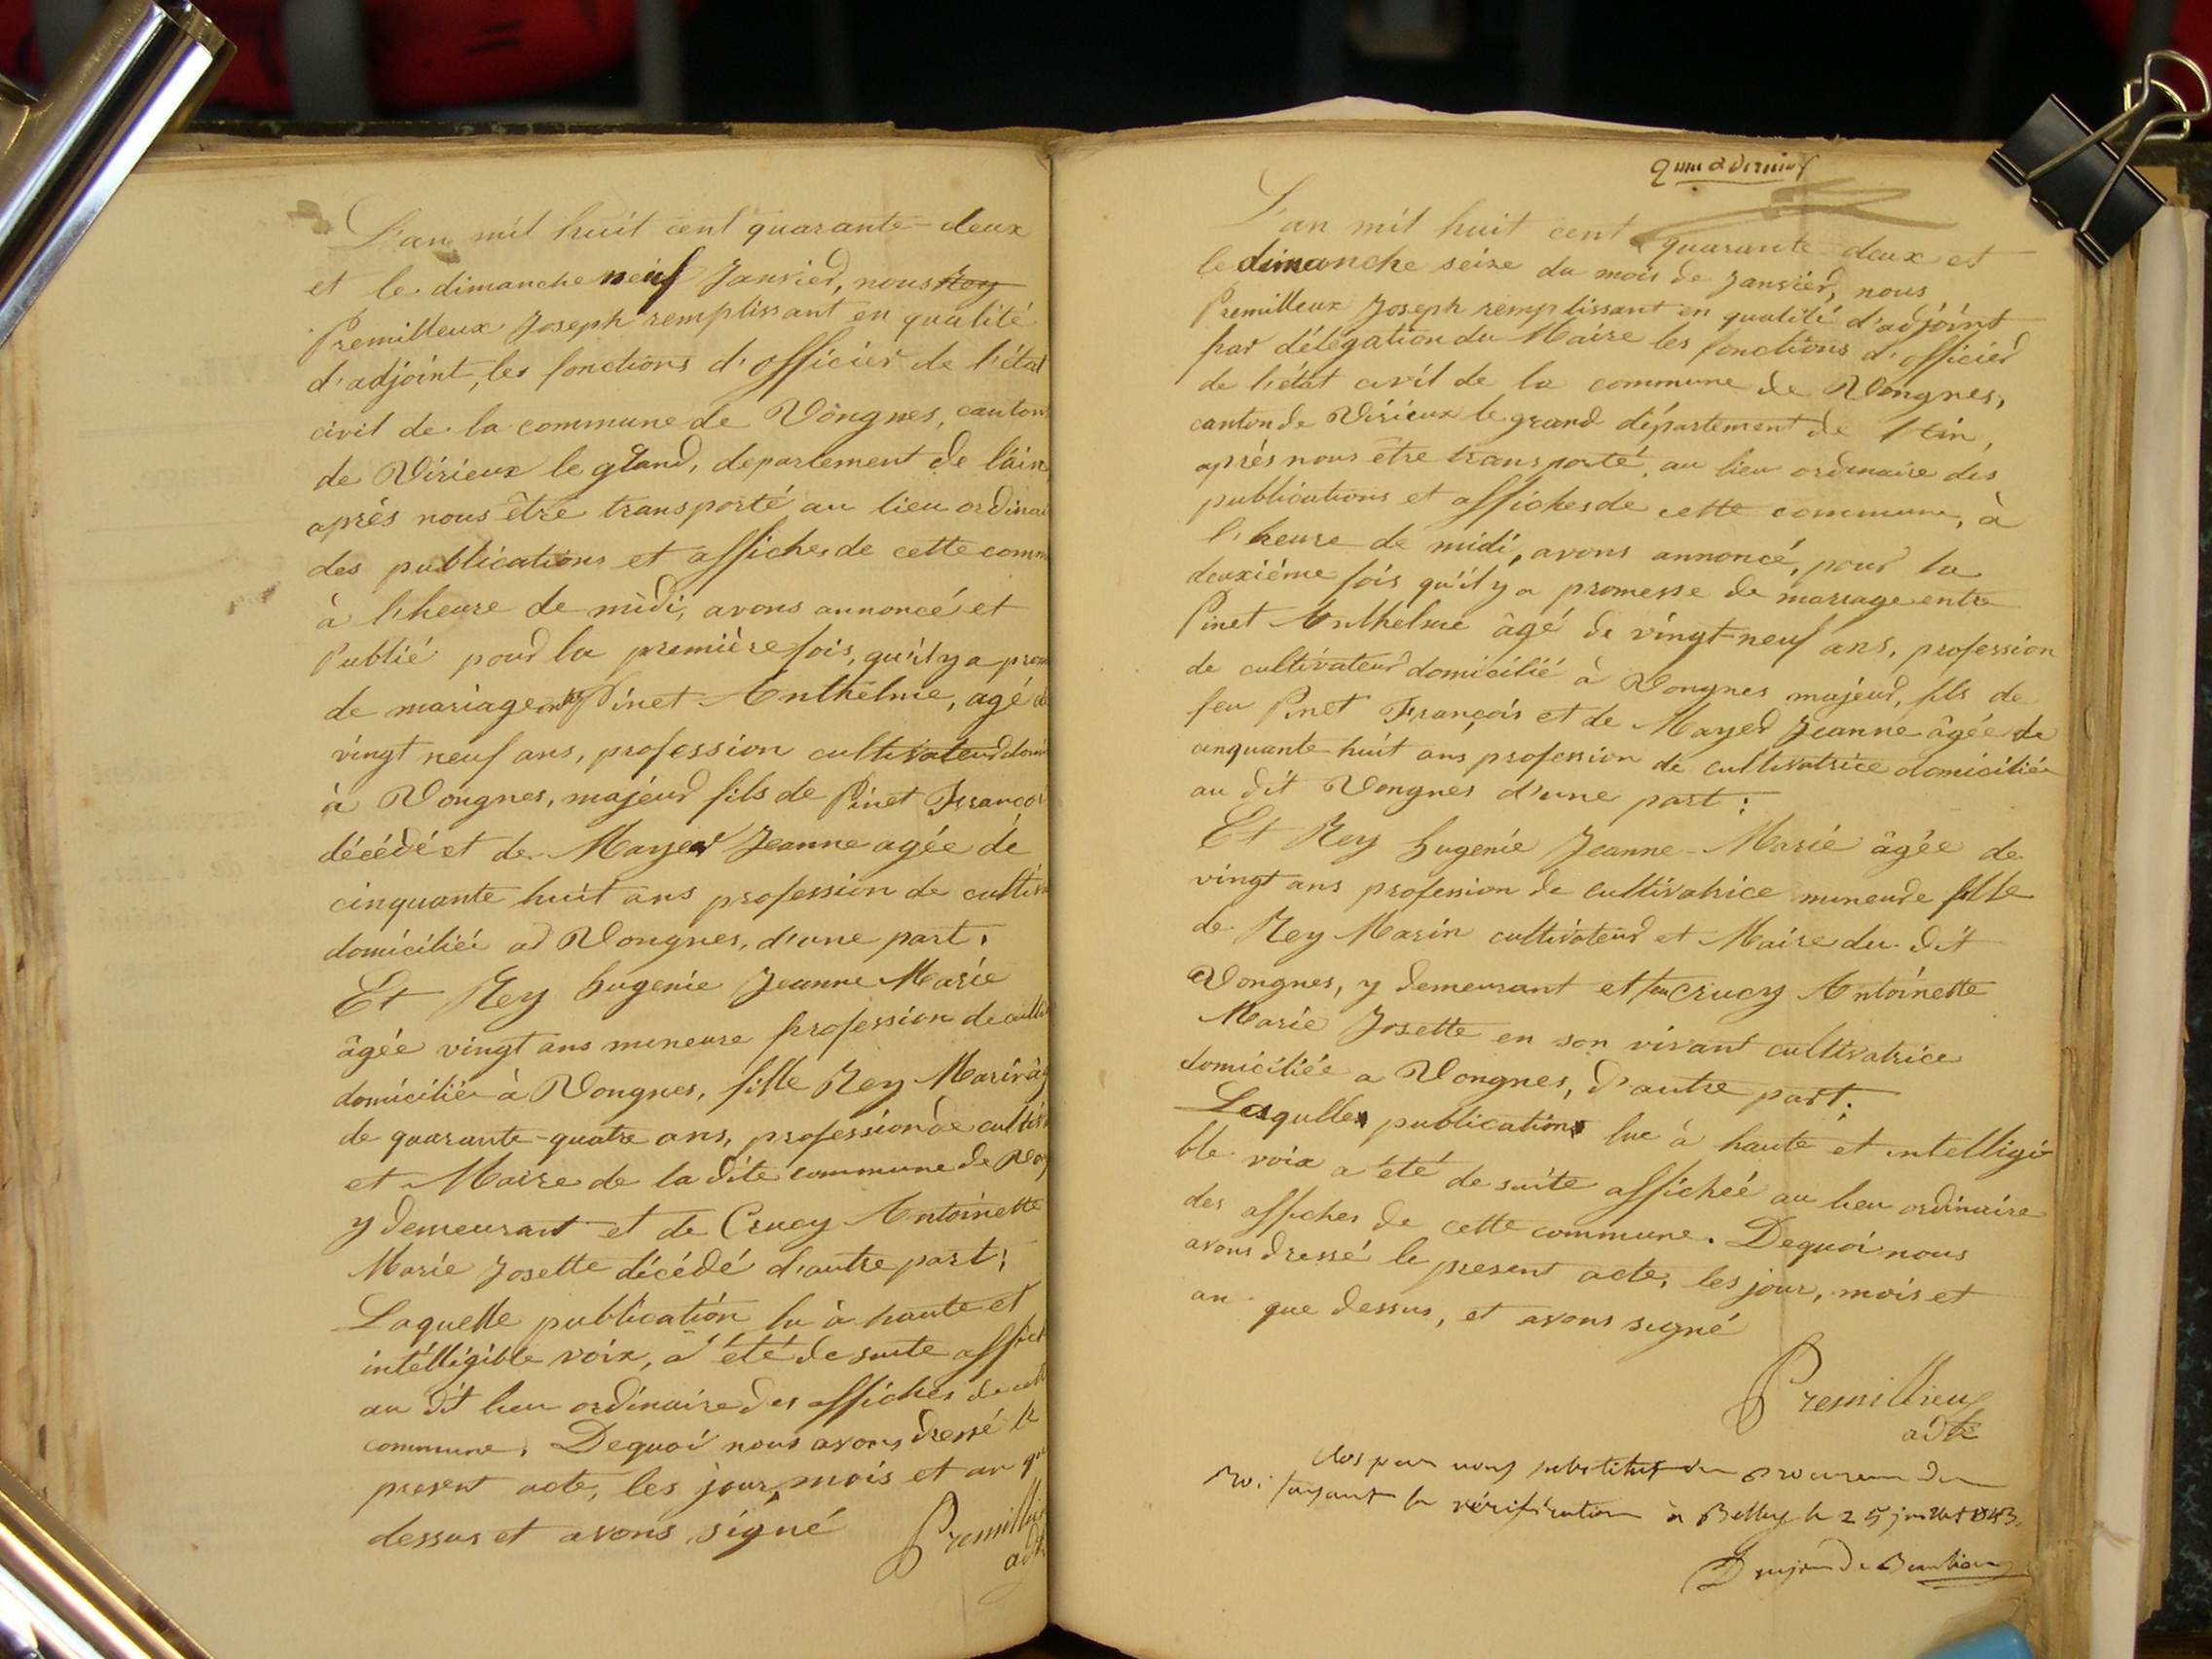 L'an mil huit cent quarante-deux
et le dimanche neuf Janvier, nous Rey
Premilleux Joseph remplissant en qualité
d'adjoint, les fonctions d'officier de l'état
civil de la commune de Vongnes, canton
de Virieux le grand, departement de l'ain
après nous être transporté au lieu ordinai
des publications et affiches de cette comm
à l'heure de midi, avons annoncé et
Publié pour la première fois, qu'il y a prom
de mariage entre Pinet Anthelme, agé de
vingt neuf ans, profession cultivateur domi
à Vongnes, majeur fils de Pinet François
décédé et de Mayer Jeanne agée de
cinquante huit ans profession de cultiva
domiciliée ad Vongnes, d'une part.
Et Rey Eugenie Jeanne Marie
âgée vingt ans mineure profession de culti
domiciliée à Vongnes, fille Rey Marin âg
de quarante-quatre ans, profession de cultiv
et Maire de la dite commune de Vo
y demeurant et de Crucy Antoinette
Marie Josette décédé d'autre part;
Laquelle publication lu à haute et
intélligible voix, a été de suite affich
au dit lieu ordinaire des affiches de cett
commune. Dequoi nous avons dressé le
present acte, les jour, mois et an qu
dessus et avons signé
Premillieu
adt
2me et dernier
L'an mil huit cent quarante deux et
le dimanche seize du mois de Janvier, nous
Premilleux Joseph remplissant en qualité d'adjoint
par délégation du Maire les fonctions d'officier
de l'état civil de la commune de Vongnes,
canton de Virieux le grand département de l'ain,
après nous être transporté au lieu ordinaire des
publications et affiches de cette commune, à
l'heure de midi, avons annoncé, pour la
deuxième fois qu'il y a promesse de mariage entre
Pinet Anthelme âgé de vingt-neuf ans, profession
de cultivateur domicilié à Vongnes majeur, fils de
feu Pinet François et de Mayer Jeanne âgée de
cinquante huit ans profession de cultivatrice domiciliée
au dit Vongnes d'une part:
Et Rey Eugenie Jeanne-Marie âgée de
vingt ans profession de cultivatrice mineure fille
de Rey Marin cultivateur et Maire du dit
Vongnes, y demeurant et feu Crucy Antoinette
Marie Josette en son vivant cultivatrice
domiciliée a Vongnes, d'autre part;
Laquelle publication lue à haute et intelligi
ble voix a été de suite affichée au lieu ordinaire
des affiches de cette commune. Dequoi nous
avons dressé le present acte, les jour, mois et
an que dessus, et avons signé
Premillieu
adt
Clos par nous substitut du procureur du
Roi faisant la vérification à Belley le 25 juillet 1843.